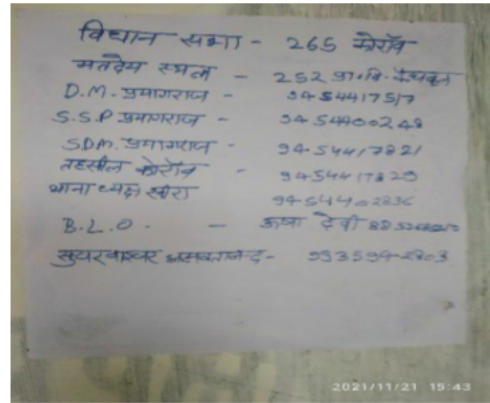 विधान सभा - 265 कोराँव
मतदेय स्थल - 252 प्रा. वि.
D.M. प्रयागराज - 9454417517
S.S.P प्रयागराज - 9454400248
S.D.M. प्रयागराज - 9454417821
तहसील कोराँव - 9454417829
थानाध्यक्ष खीरी 9454402836
B.L.O. - ऊषा देवी
सुपरवाइजर - 9935942803
2021/11/21 15:43